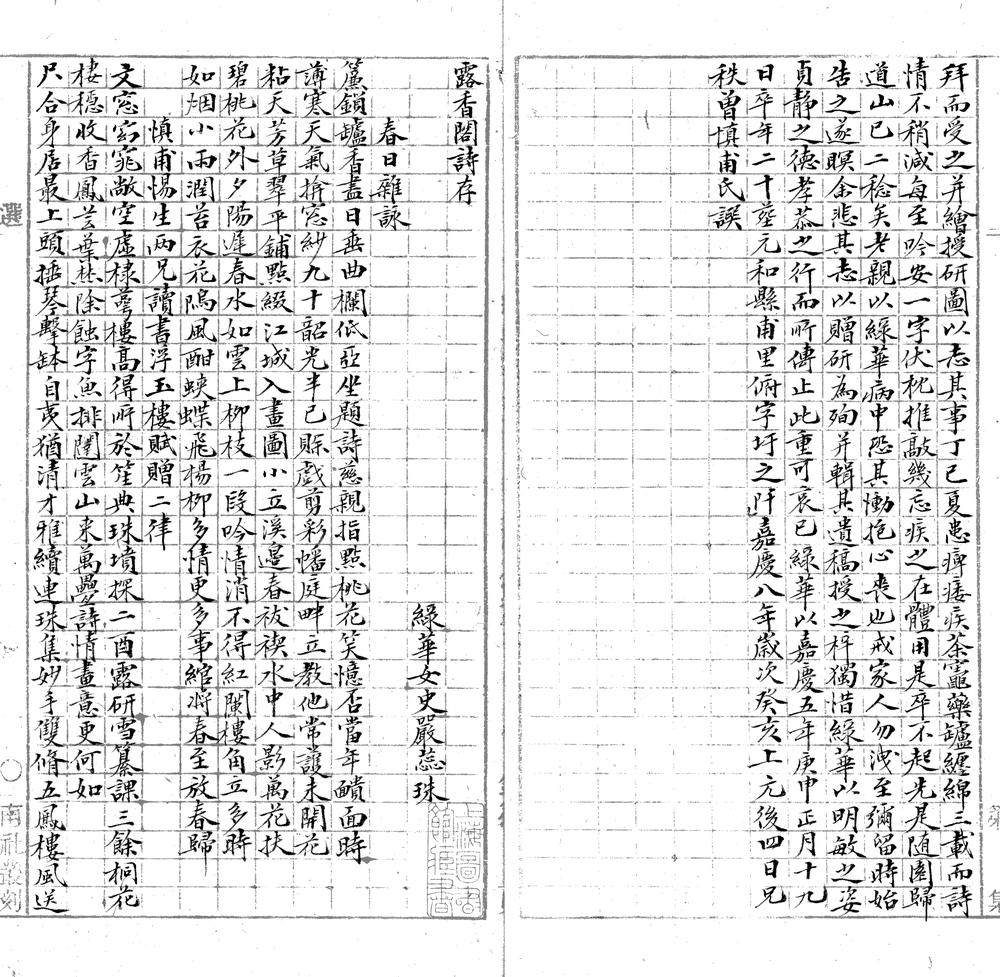 拜而受之并繪授研圖以志其事丁巳夏患痺痿疾茶竈藥罏纏綿三載而詩
情不稍減每至吟安一字伏枕推敲幾忘疾之在體用是卒不起先是随園歸
道山已二稔矣老親以綠華病中恐其慟抱心喪也戒家人勿洩至彌留時始
告之遂瞑余悲其志以贈研為殉并輯其遺稿授之梓獨惜綠華以明敏之姿
貞静之德孝恭之行而所傳止此重可哀已綠華以嘉慶五年庚申正月十九
日卒年二十塟元和縣甫里俯字圩之阡嘉慶八年嵗次癸亥上元後四日兄
秩曽慎甫氏譔
露香閣詩存
綠華女史嚴蕊珠
春日雜詠
簾鎖罏香盡日垂曲欄低亞坐題詩慈親指點桃花笑憶否當年醵面時
薄寒天氣揜窓紗九十韶光半已賖戲剪彩幡庭畔立教他常護未開花
粘天芳草翠平鋪點綴江城入畫圖小立溪邉春袚禊水中人影萬花扶
碧桃花外夕陽遲春水如雲上柳枝一段吟情消不得紅闌樓角立多時
如烟小雨潤苔衣花隖風酣蛺蝶飛楊柳多情更多事綰將春至放春歸
慎甫惕生兩兄讀書浮玉樓賦贈二律
文窓窈窕敞空虛棣萼樓高得所於笙典珠墳探二酉露研雪纂課三餘桐花
棲穩收香鳳芸葉熏除蝕字魚排闥雲山来萬疊詩情畫意更何如
尺合身居最上頭揷琴擊缽自夷猶清才雅續連珠集妙手雙脩五鳳樓風送
選
南社叢刻
集